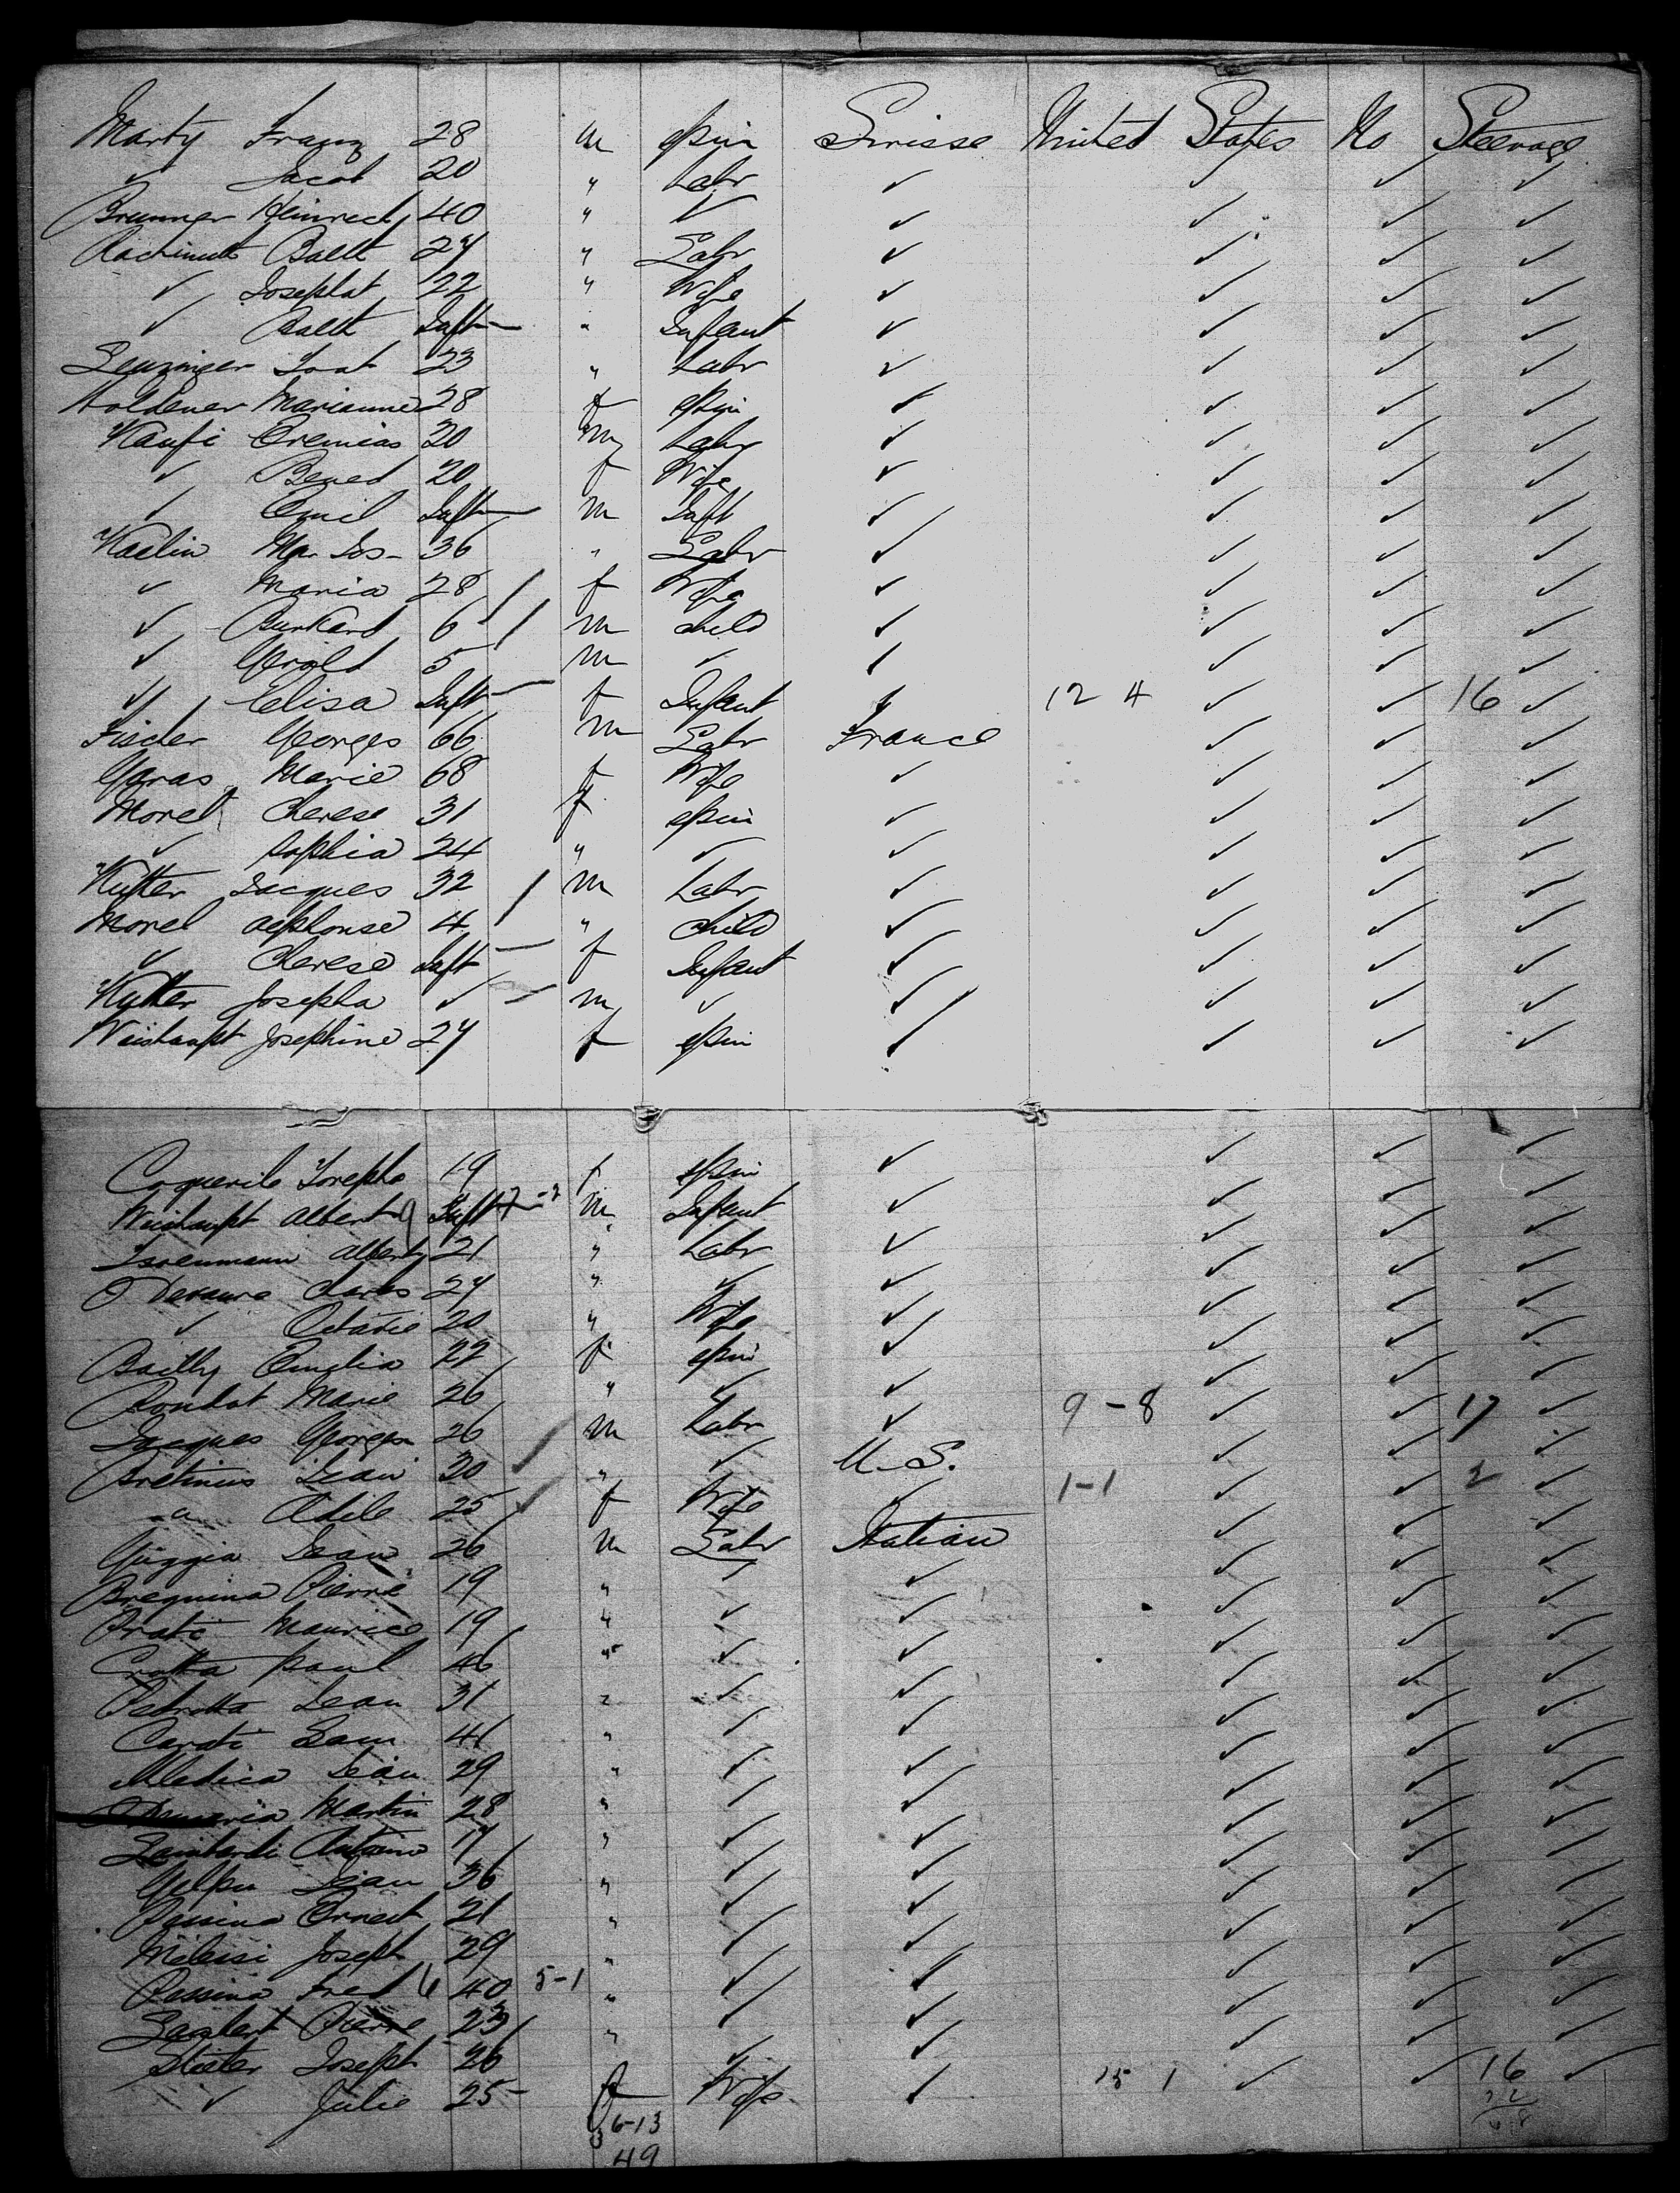 Marty Franz 28 m spin Suisse United States No Steerage
✓ Jacob 20 " Labr ✓ ✓ ✓ ✓
Brunner Heinrech 40 " ✓ ✓ ✓ ✓ ✓
Balth 27 " Labr ✓ ✓ ✓ ✓
✓ Josephat 22 " Wife ✓ ✓ ✓ ✓
✓ Balth Inft — " Infant ✓ ✓ ✓ ✓
Leuzinger 23 " Labr ✓ ✓ ✓ ✓
Holdener Marianne 28 f spin ✓ ✓ ✓ ✓
Kaufi Eremias 20 m Labr ✓ ✓ ✓ ✓
✓ Bened 20 f Wife ✓ ✓ ✓ ✓
✓ Emil Inft — m Inft ✓ ✓ ✓ ✓
Kaelin Mr. Jos - 36 " Labr ✓ ✓ ✓ ✓
✓ Maria 28 f Wife ✓ ✓ ✓ ✓
✓ Burkard 6 m child ✓ ✓ ✓ ✓
✓ Gerold 5 m ✓ ✓ ✓ ✓ ✓
✓ Elisa Inft — f Infant ✓ 12 4 ✓ ✓ 16 ✓
Georges 66 m Labr France ✓ ✓ ✓
Gras Marie 68 f Wife ✓ ✓ ✓ ✓
Morel Cherese 31 f spin ✓ ✓ ✓ ✓
✓ Sophia 24 " ✓ ✓ ✓ ✓ ✓
Kutter Jacques 32 m Labr ✓ ✓ ✓ ✓
Morel Aephonse 4 " child ✓ ✓ ✓ ✓
✓ Cherese Inft — f Infant ✓ ✓ ✓ ✓
Kutter Josepha ✓ — m ✓ ✓ ✓ ✓ ✓
Weishaupt Josephine 27 f spin ✓ ✓ ✓ ✓
Coquerile Josepha 19 f spin ✓ ✓ ✓ ✓
Weishaupt Albert 9 Inft m Infant ✓ ✓ ✓ ✓
Isenmann Albert 21 " Labr ✓ ✓ ✓ ✓
Charles 27 " ✓ ✓ ✓ ✓ ✓
✓ Octavie 20 " Wife ✓ ✓ ✓ ✓
Bailly Emelia 22 f spin ✓ ✓ ✓ ✓
Marie 26 " ✓ ✓ 9-8 ✓ ✓ 17 ✓
Jacques Georges 26 m Labr ✓ ✓ ✓ ✓
Bretinus Jean 30 " ✓ U.S. 1-1 ✓ ✓ 2 ✓
" Adile 25 f Wife ✓ ✓ ✓ ✓
Guggia Jean 26 m Labr Italian ✓ ✓ ✓
Bregnina Pierre 19 " ✓ ✓ ✓ ✓ ✓
Prati Maurice 19 " ✓ ✓ ✓ ✓ ✓
Crotta Paul 46 " ✓ ✓ ✓ ✓ ✓
Pedrotta Jean 31 " ✓ ✓ ✓ ✓ ✓
Carati Sam 41 " ✓ ✓ ✓ ✓ ✓
Medica Jean 29 " ✓ ✓ ✓ ✓ ✓
Martin 28 " ✓ ✓ ✓ ✓ ✓
Lambardi Antoine 17 " ✓ ✓ ✓ ✓ ✓
Jean 36 " ✓ ✓ ✓ ✓ ✓
Pessina Ernest 21 " ✓ ✓ ✓ ✓ ✓
Milessi Joseph 29 " ✓ ✓ ✓ ✓ ✓
Pessina Fred 6 40 5-1 " ✓ ✓ ✓ ✓ ✓
Pierre 23 " ✓ ✓ ✓ ✓ ✓
Joseph 26 ✓ ✓ ✓ ✓ ✓
✓ Julie 25 f Wife ✓ 15 1 ✓ ✓ 16 ✓
6-13
49